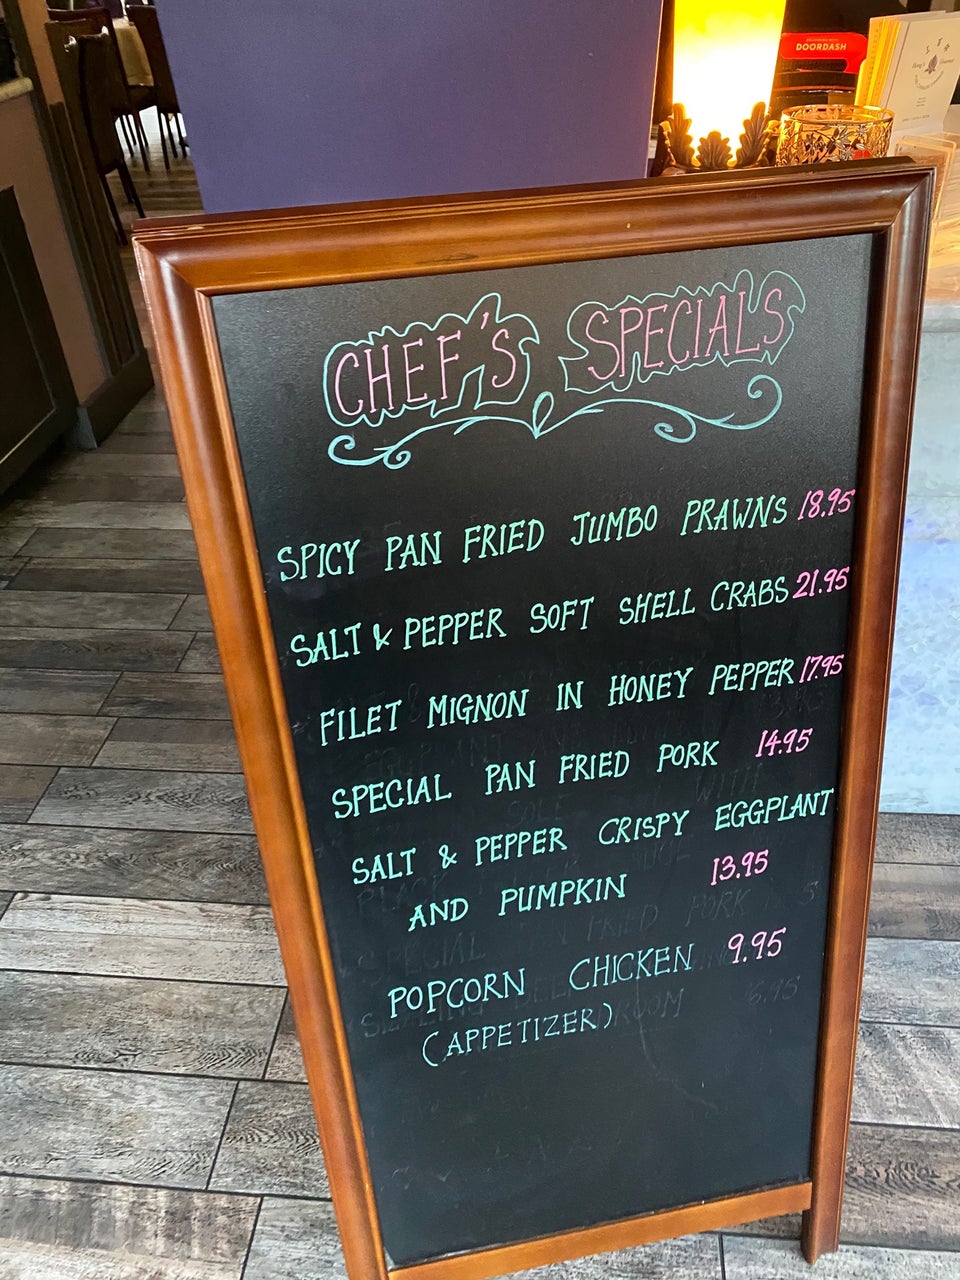 DOORDASH
CHEF'S SPECIALS
SPICY PAN FRIED JUMBO PRAWNS 18.95
SALT & PEPPER SOFT SHELL CRABS 21.95
FILET MIGNON IN HONEY PEPPER 17.95
SPECIAL PAN FRIED PORK 14.95
SALT & PEPPER CRISPY EGGPLANT
AND PUMPKIN 13.95
POPCORN CHICKEN 9.95
(APPETIZER)